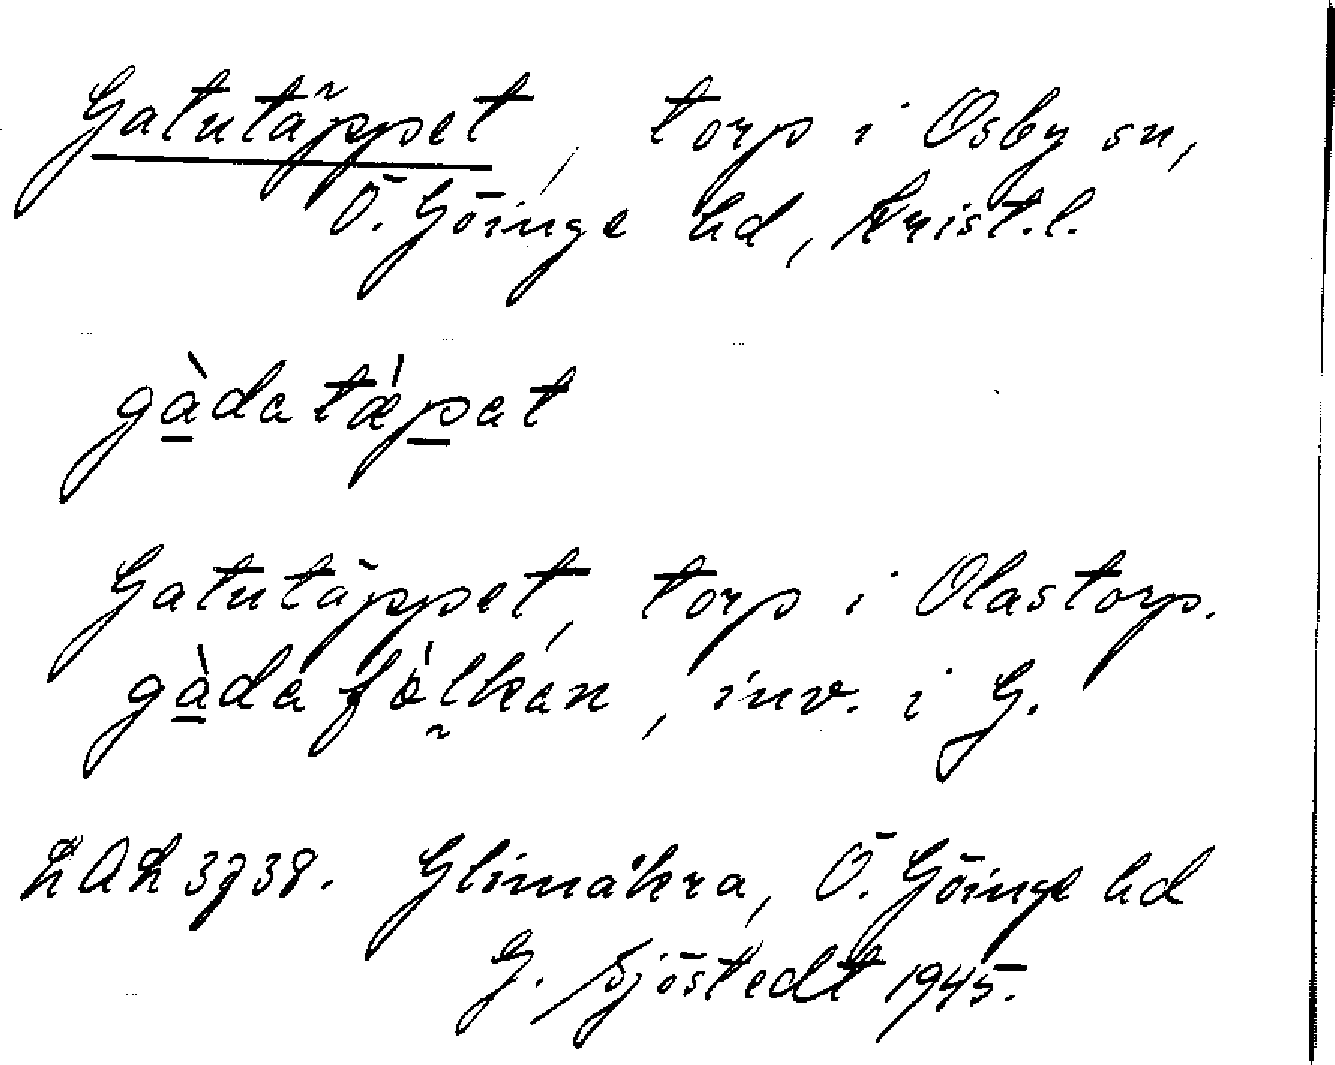 Gatutäppet, torp i Osby sn,
Ö. Göinge hd, Krist.l.
gàdatæ̀pat
Gatutäppet, torp i Olastorp.
gàdafȯlkan, inv. i G.
LAL 3738. Glimåkra, Ö. Göinge hd
G. Sjöstedt 1945.